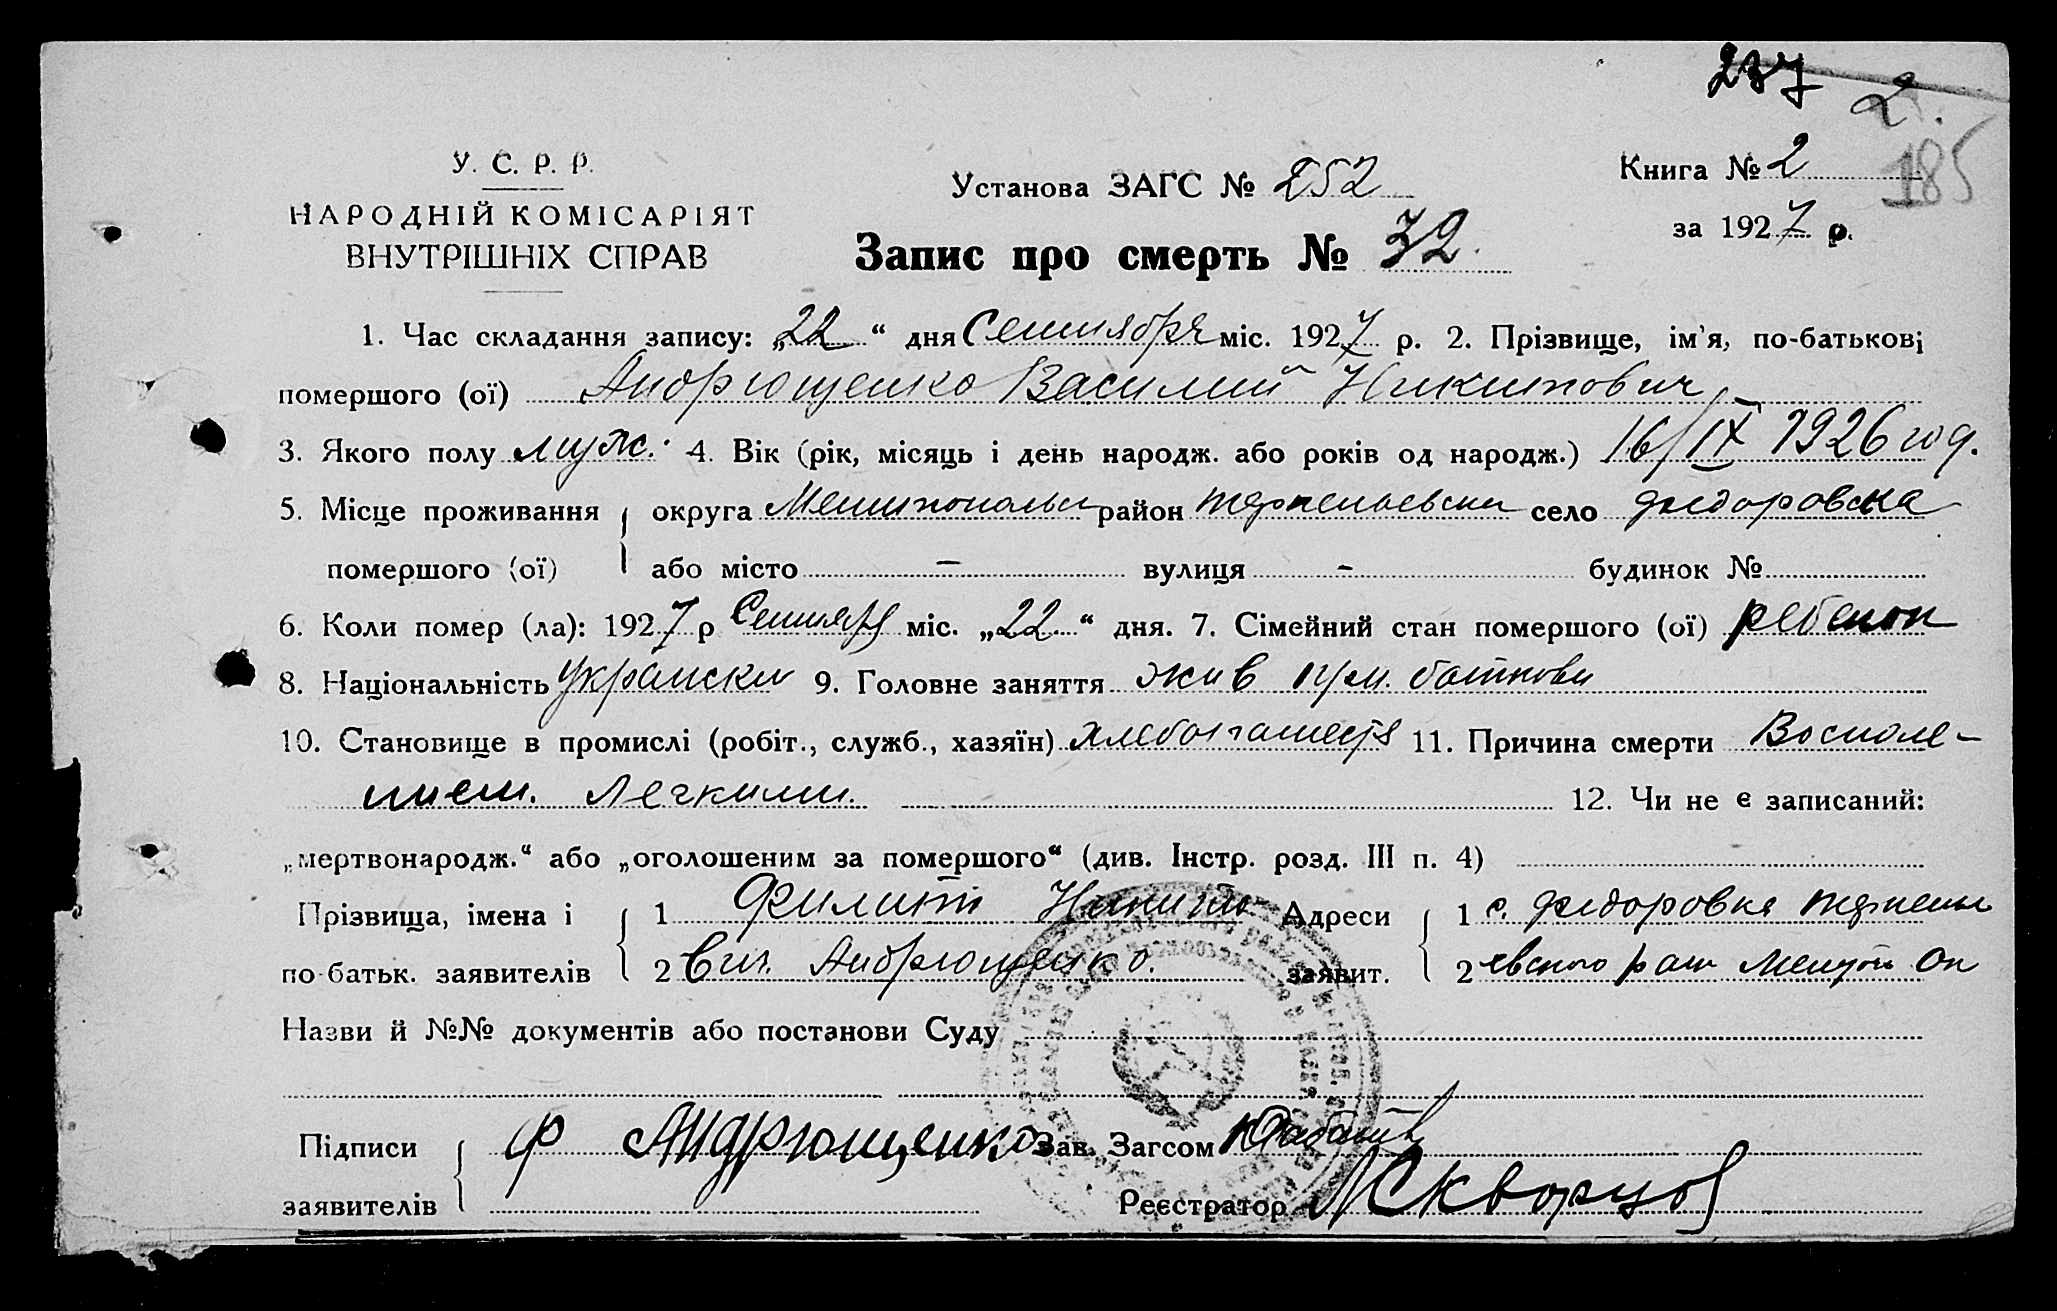 237
2.
185
У. С. Р. Р.
НАРОДНІЙ КОМІСАРІЯТ
ВНУТРІШНІХ СПРАВ
Установа ЗАГС № 252
Книга № 2
за 1927 р.
Запис про смерть № 32.
1. Час складання запису: „22“ дня Сентября міс. 1927 р. 2. Прізвище, ім'я, по-батькові
помершого (ої) Андрющенко Василий Никитович
3. Якого полу муж. 4. Вік (рік, місяць і день народж. або років од народж.) 16/IX 1926 год.
5. Місце проживання округа район село Федоровка
помершого (ої) або місто – вулиця – будинок №
6. Коли помер (ла): 1927 р міс. „22“ дня. 7. Сімейний стан помершого (ої) ребенок
8. Національність 9. Головне заняття жив при
10. Становище в промислі (робіт., служб., хазяїн) 11. Причина смерти Воспале-
нием. Легкими. 12. Чи не є записаний:
„мертвонародж.“ або „оголошеним за помершого“ (див. Інстр. розд. III п. 4)
Прізвища, імена і 1 Филипп Никито Адреси 1 с. Федоровка
по-батьк. заявителів 2 вич. Андрющенко. заявит. 2
Назви й №№ документів або постанови Суду
Підписи Ф Андрющенко Зав. Загсом
заявителів Реєстратор Скворцов